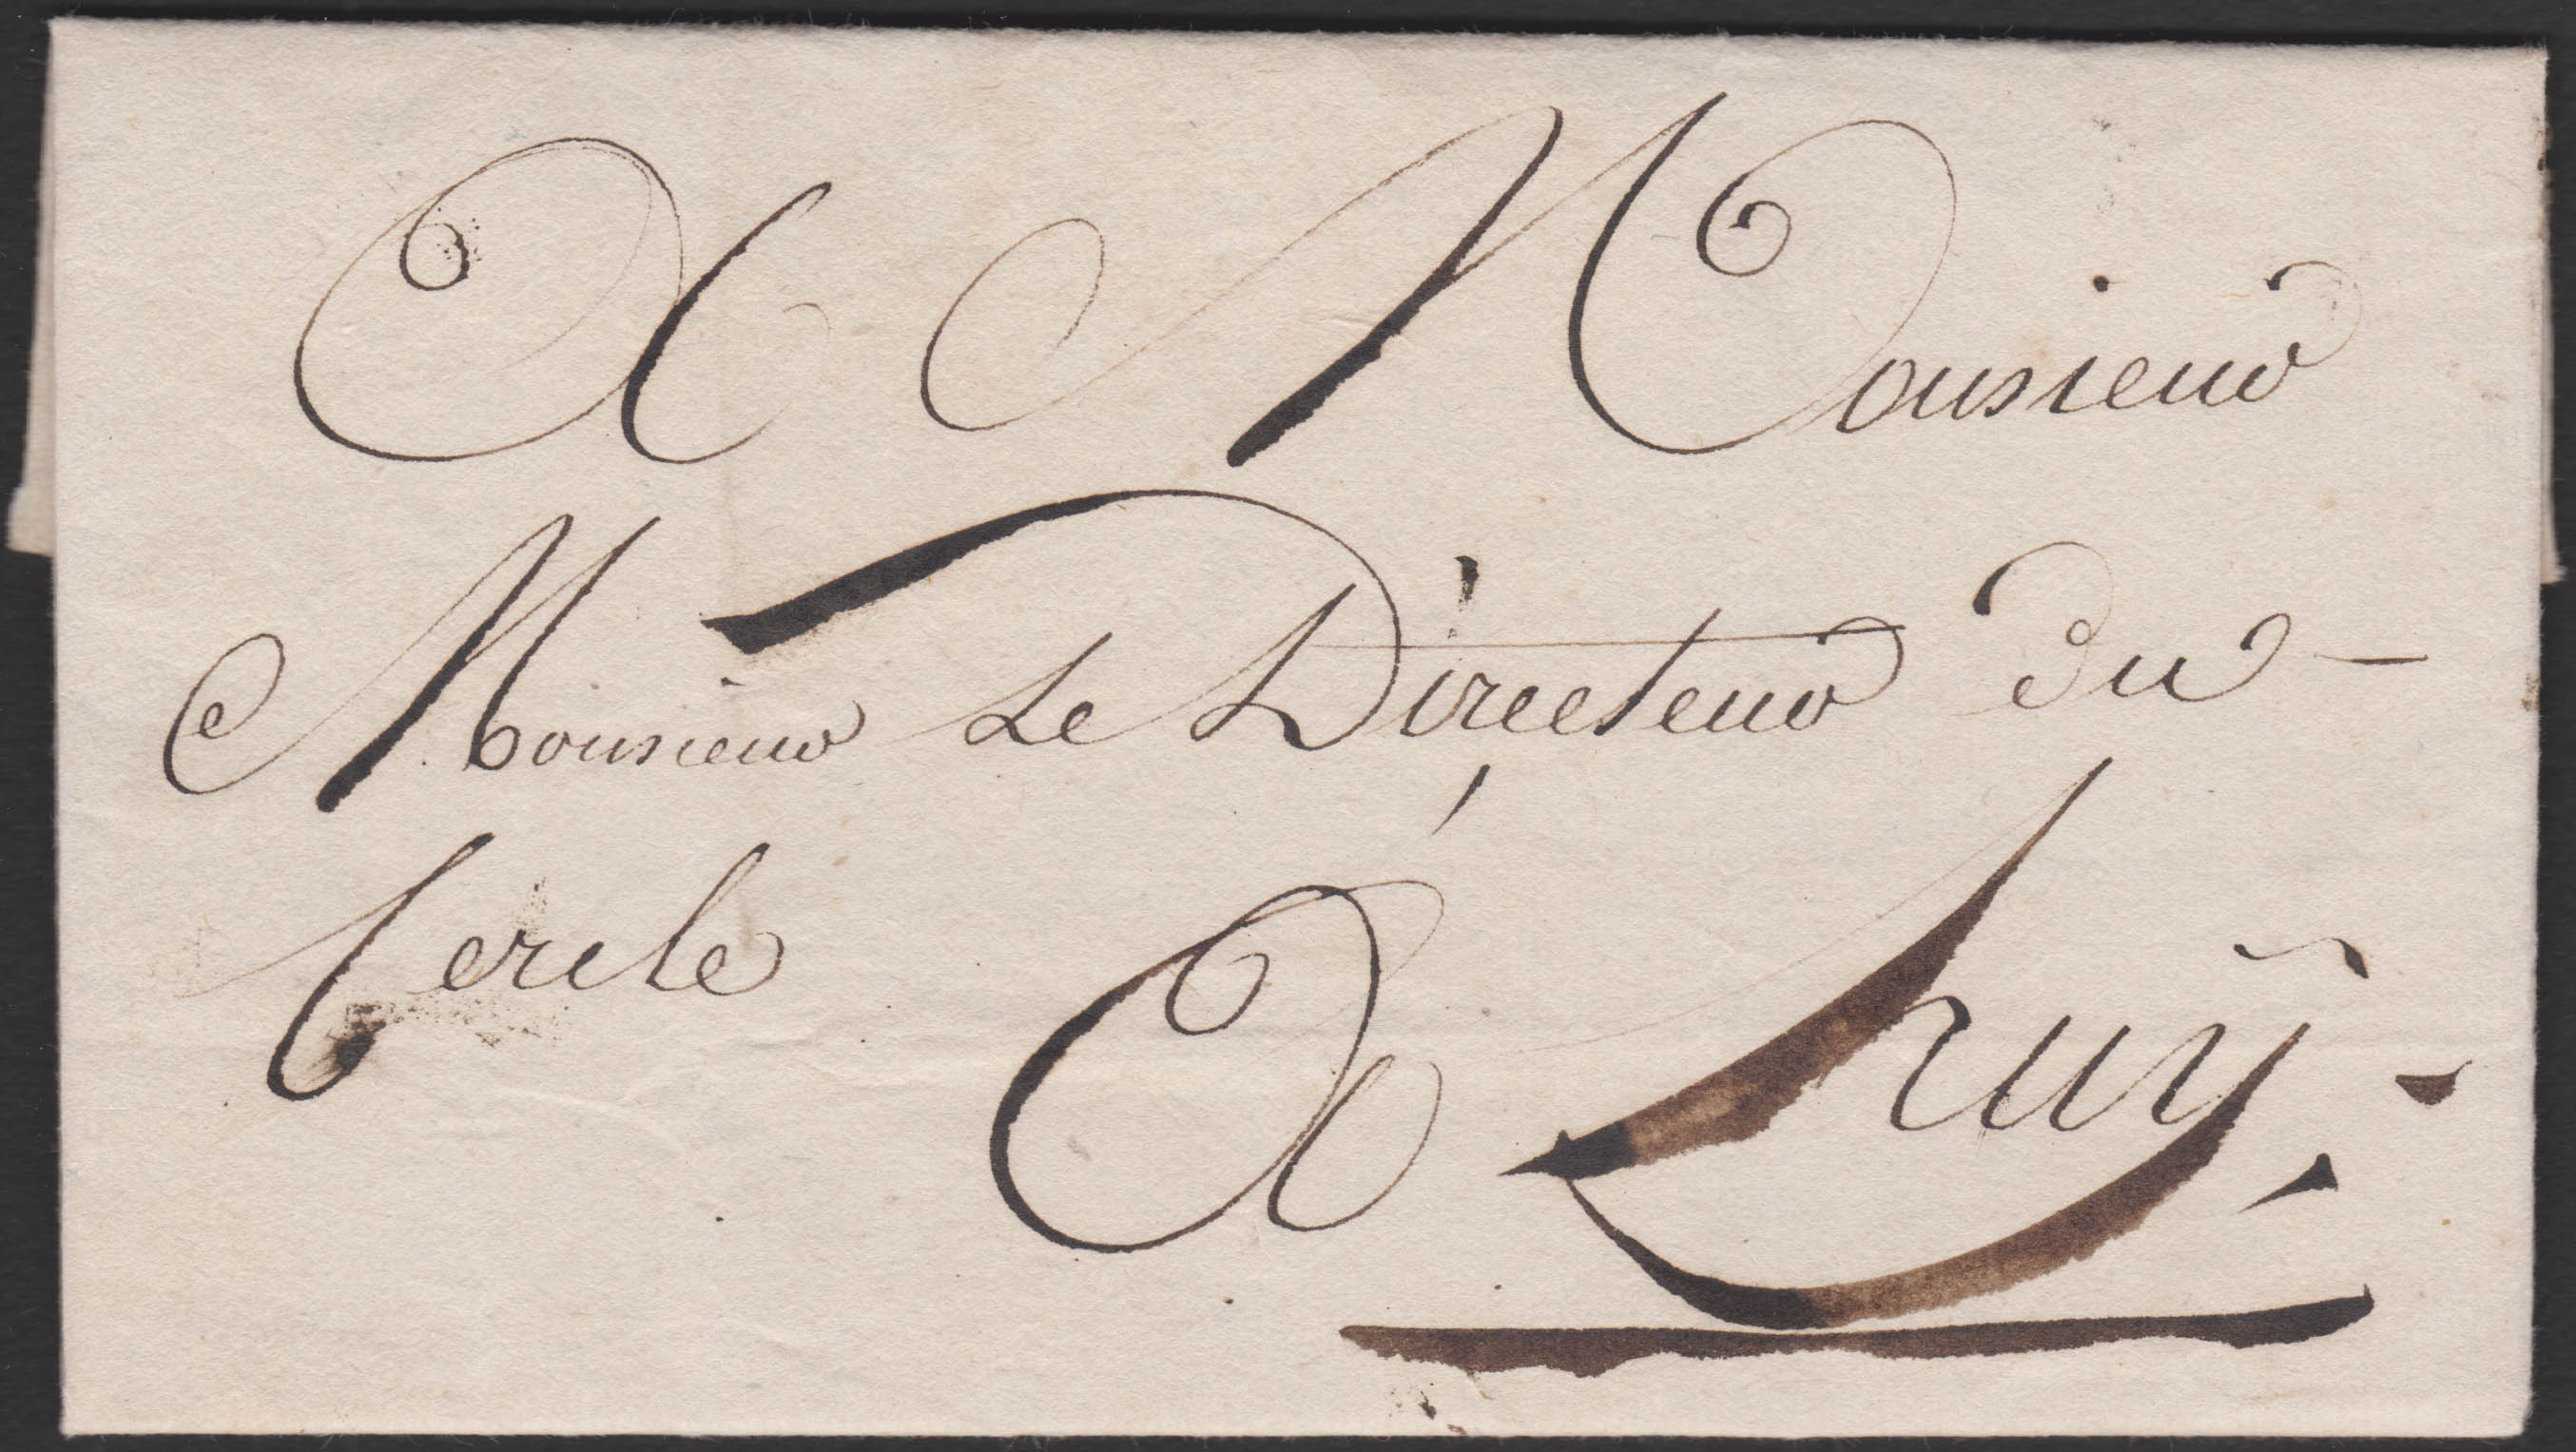 A Monsieur
Monsieur Le Directeur du
Cercle
A huÿ.